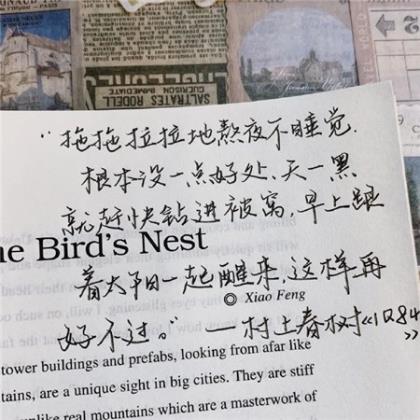 SALTRATES RODELL
"拖拖拉拉地熬夜不睡觉.
根本没一点好处.天一黑
就赶快钻进被窝,早上跟
he Bird's Nest
着太阳一起醒来.这样再
Xiao Feng
好不过。" —村上春树《1Q84》
tower buildings and prefabs, looking from afar like
tains, are a unique sight in big cities. They are stiff
unlike real mountains which are a masterwork of